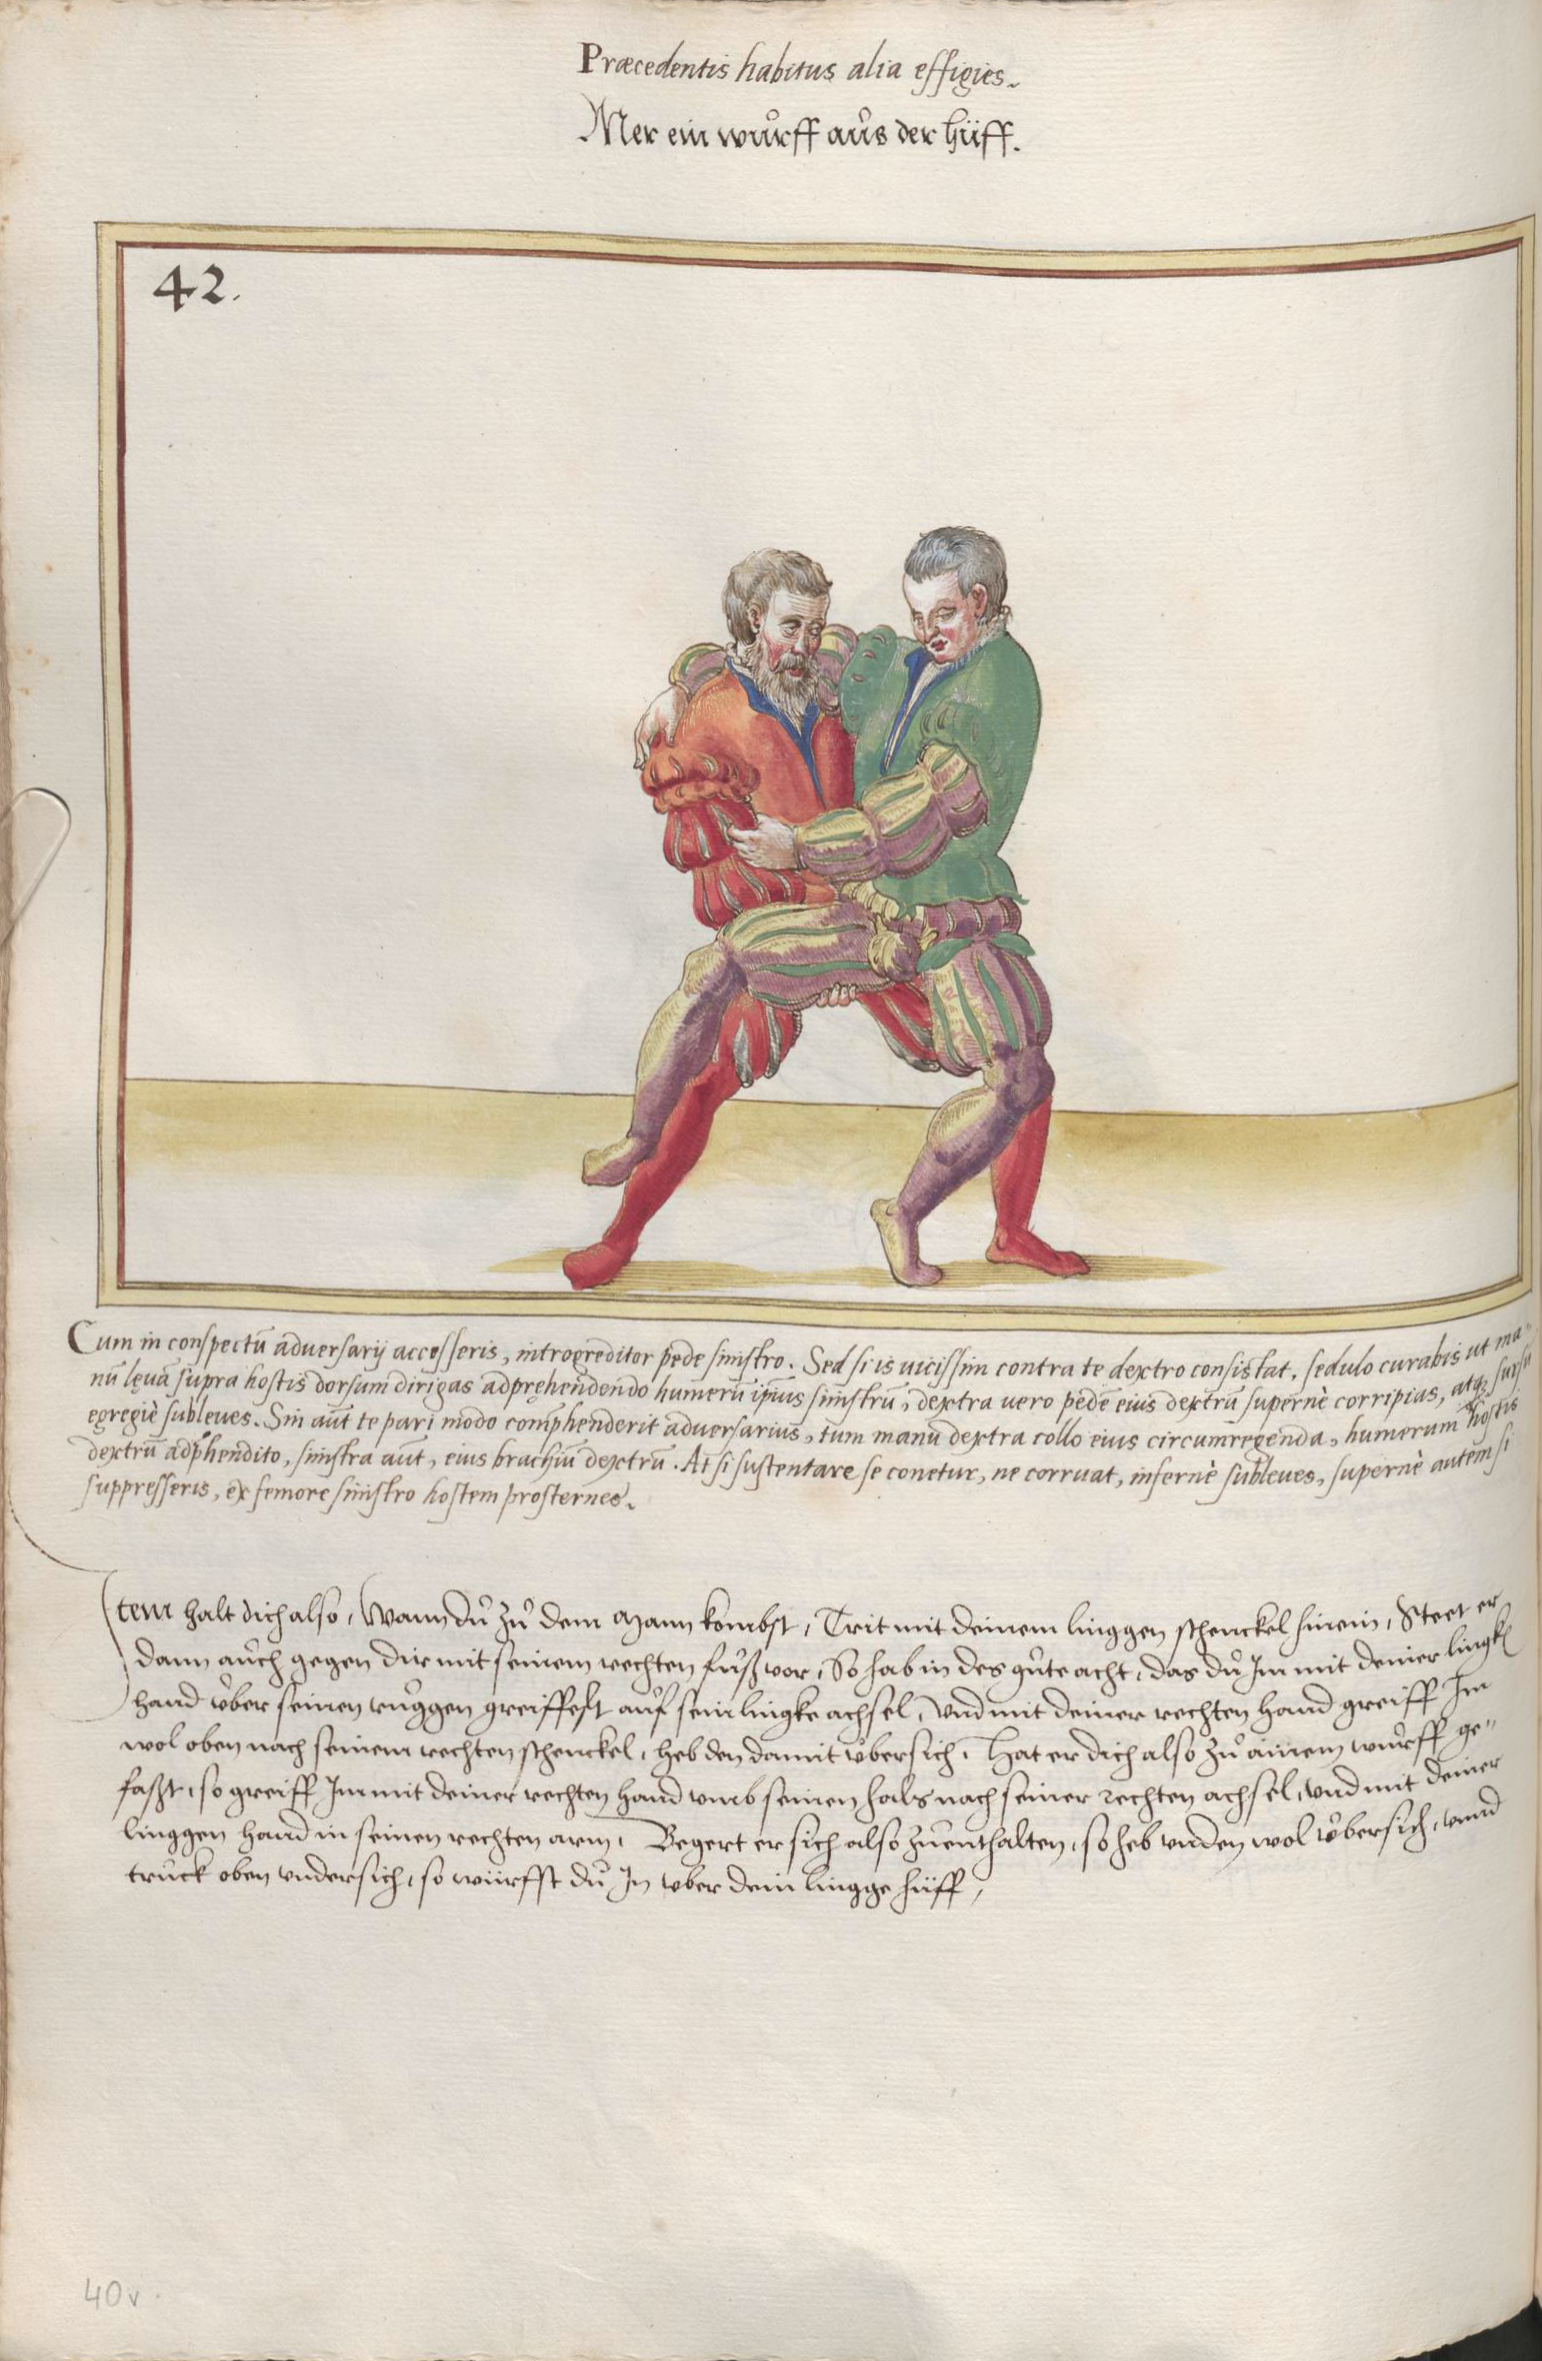 Præcedentis habitus alia effigies.
Mer ein wůrff aůs der hüff.
42.
Cum in conspectū adversarij accesseris, introgreditor pede sinistro. Sed si is vicissim contra te dextro consistat, sedulo curabis ut ma-
nū lęvā supra hostis dorsum dirigas adpręhendendo humerū ipsius sinistrū, dextra vero pedē eius dextrū supernè corripias, atq; sursū
egregiè subleves. Sin aūt te pari modo compħenderit adversarius, tum manu dextra collo eius circumregenda, humerum hostis
dextrū adpħendito, sinistra aūt, eius brachiū dextrū. At si sustentare se conetur, ne corruat, infernè subleves, supernè autem si
suppresseris, ex femore sinistro hostem prosternes.
Item halt dich also, Wann dů zů dem Mann kombst, Trit mit deinem linggen schenckel hinein, Steet er
dann aůch gegen dir mit seinem rechten fůß vor, So hab in des gůte acht, das dů Im mit deiner lingkē
hand vber seinen růggen greiffest aůf sein lingke achsel, Vnd mit deiner rechten hand greiff Im
wol oben nach seinem rechten schenckel, heb den damit vbersich, Hat er dich also zů ainem wůrff ge-
faßt, so greiff Im mit deiner rechten hand vmb seinen hals nach seiner rechten achsel, vnd mit deiner
linggen hand in seinen rechten arm, Begert er sich also zůenthalten, so heb vnden wol vbersich, vnnd
trůck oben vndersich, so würfst dů In vber dein lingge hüff,
40v